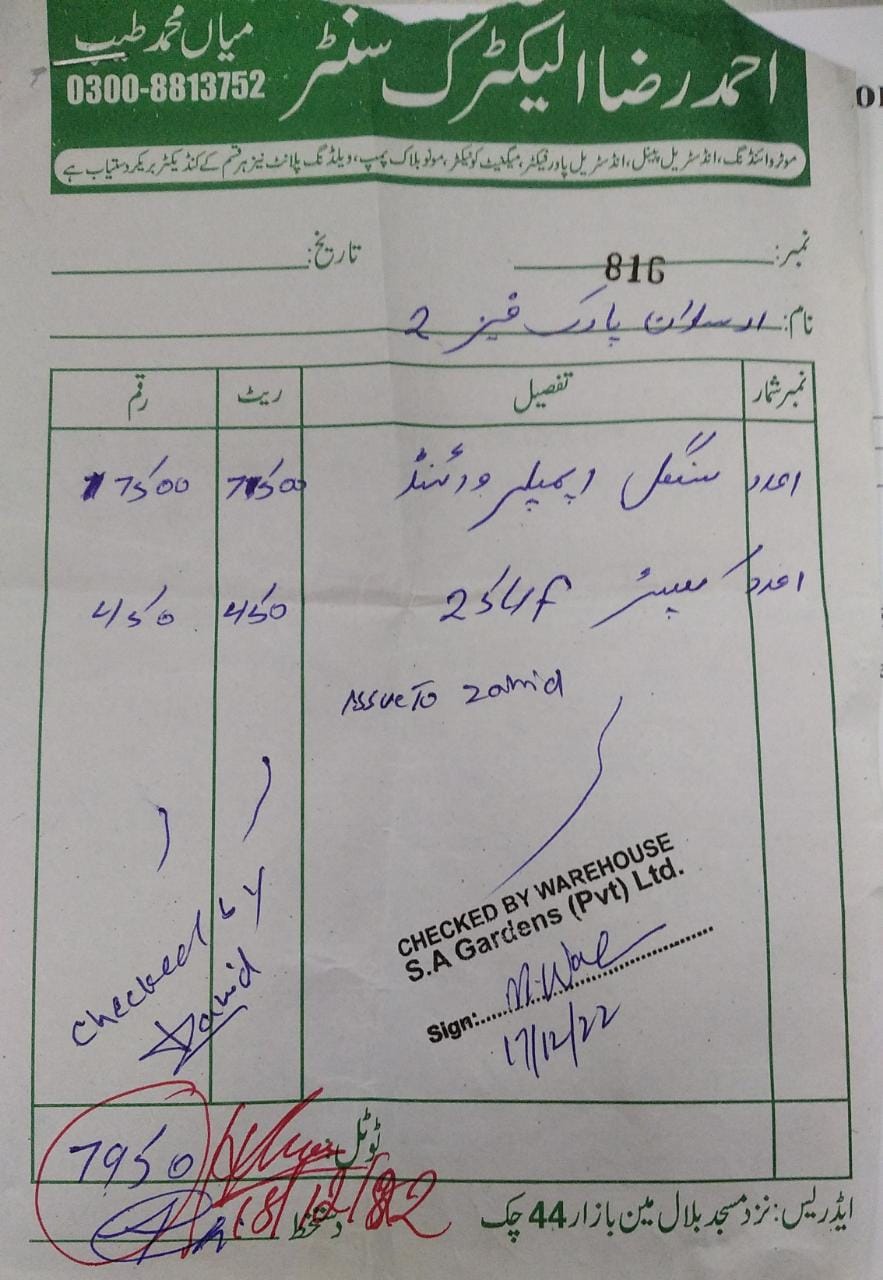 احمد رضا الیکٹرک سنٹر
میاں محمد طیب
0300-8813752
موٹر وائنڈنگ، انڈسٹریل پینل، انڈسٹریل پاور فیکٹر، میگنیٹ کونٹیکٹر، مونو بلاک پمپ، ویلڈنگ پلانٹ نیز ہر قسم کے کنڈیکٹر بریکر دستیاب ہے
نمبر: 816 تاریخ:
نام: ارسلان پارک فیز 2
نمبر شمار تفصیل ریٹ رقم
1عدد سنگل وائنڈ 7500 7500
1عدد 254f 450 450
Issue To Zahid
Checked by
Zahid
CHECKED BY WAREHOUSE
S.A Gardens (Pvt) Ltd.
Sign:
17/12/22
ٹوٹل: 7950
18/12/22
دستخط
ایڈریس: نزد مسجد بلال مین بازار 44 چک